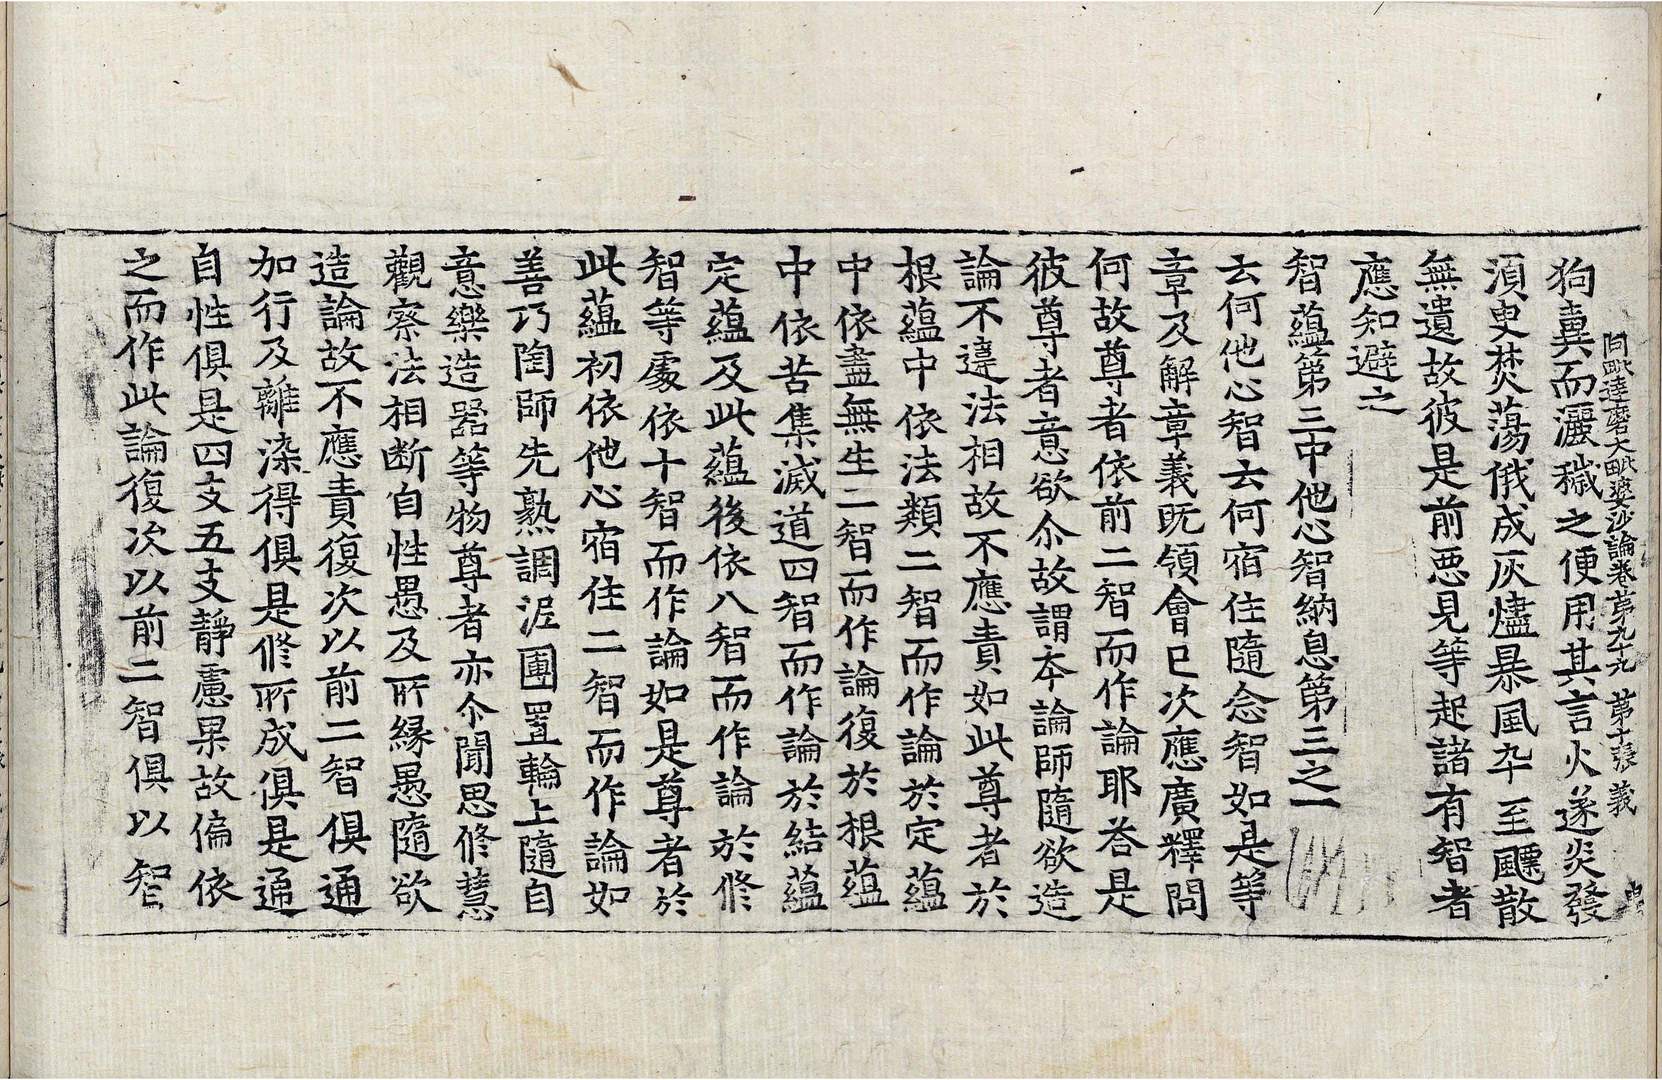 阿毗達磨大毗婆沙論卷第九十九 第十張 義
狗糞而灑穢之便用其言火遂炎發
湏臾焚蕩俄成灰燼暴風卒至飄散
無遺故彼是前惡見等起諸有智者
應知避之
智蘊第三中他心智納息第三之一
云何他心智云何宿住隨念智如是等
章及解章義旣領會已次應廣釋問
何故尊者依前二智而作論耶荅是
彼尊者意欲尒故謂本論師隨欲造
論不違法相故不應責如此尊者於
根蘊中依法類二智而作論於定蘊
中依盡無生二智而作論復於根蘊
中依苦集滅道四智而作論於結蘊
定蘊及此蘊後依八智而作論於修
智等處依十智而作論如是尊者於
此蘊初依他心宿住二智而作論如
善巧陶師先熟調泥團置輪上隨自
意樂造器等物尊者亦尒聞思修慧
觀察法相斷自性愚及所緣愚隨欲
造論故不應責復次以前二智俱通
加行及離染得俱是修所成俱是通
自性俱是四支五支靜慮果故偏依
之而作此論復次以前二智俱以智